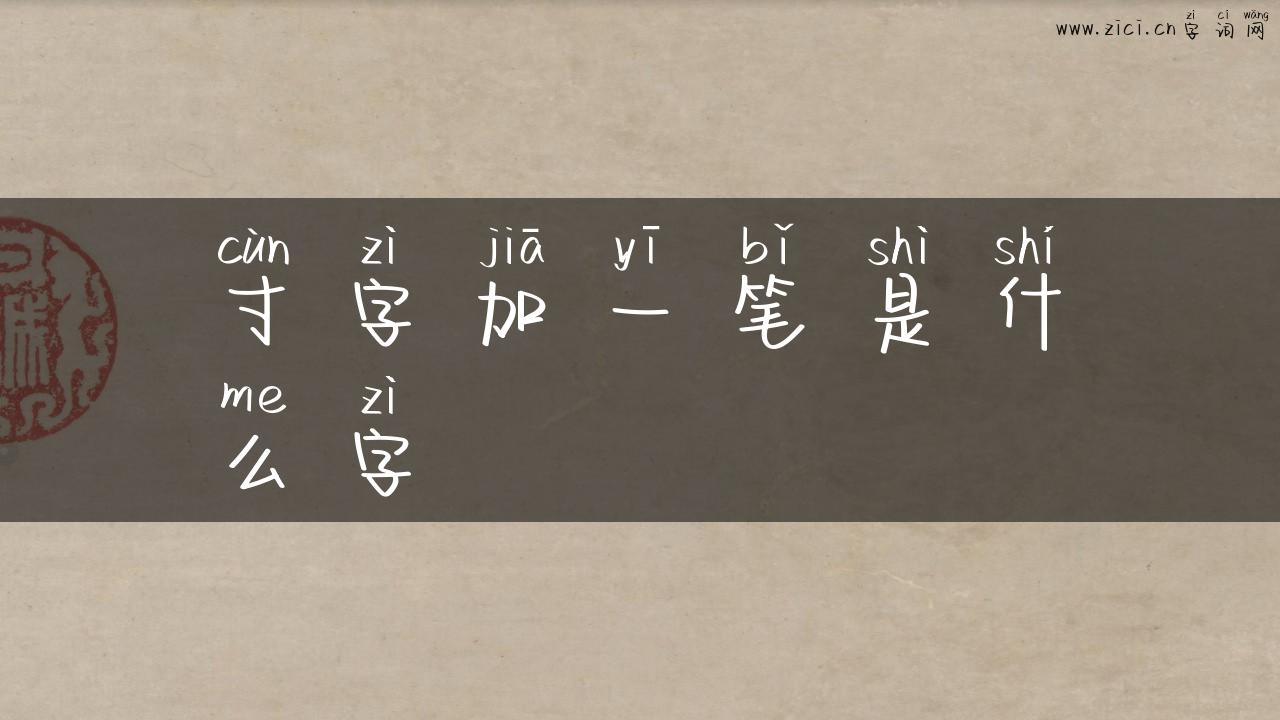 www.zici.cn 字词网
zì cí wǎng
cùn zì jiā yī bǐ shì shí
寸字加一笔是什
me zì
么字